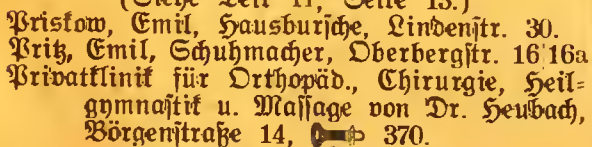 (Siehe Teil II, Seite 13.)
Pristow, Emil, Hausbursche, Lindenstr. 30.
Pritz, Emil, Schuhmacher, Oberbergstr. 16 16a
Privatklinik für Orthopäd., Chirurgie, Heil-
gymnastik u. Massage von Dr. Heubach,
Börgenstraße 14, 370.